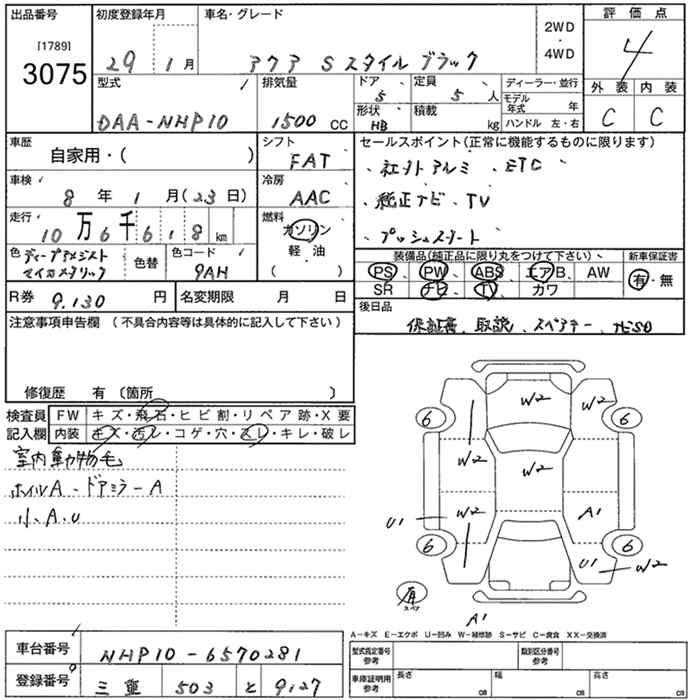 出品番号
[1789]
3075
初度登録年月
29 1 月
車名・グレード
アクア S スタイル ブラック
2WD
・
4WD
評価点
4
外装 内装
C C
型式
DAA-NHP10
排気量
1500 CC
ドア
5
定員
5 人
形状
HB
積載
kg
ディーラー・並行
モデル年式 年
ハンドル 左・右
車歴
自家用・( )
シフト
FAT
車検
8 年 1 月(23日)
冷房
AAC
走行
10万6千618 km
燃料
ガソリン
軽・油
( )
色
ディープアメジスト
マイカメタリック
色替
色コード
9AH
R券 9.130 円
名変期限 月 日
セールスポイント(正常に機能するものに限ります)
、社外アルミ 、ETC、
、純正ナビ、TV
、プッシュスタート
装備品(純正品に限り丸をつけて下さい)、
新車保証書
PS PW ABS エアB AW
有・無
SR ナビ TV カワ
後日品
保証書、取説、スペアキー、ナビSD
注意事項申告欄(不具合内容等は具体的に記入して下さい)
修復歴 有〔箇所 〕
検査員
記入欄
FW キズ・飛石・ヒビ割・リペア跡・X要
内装 キズ・汚レ・コゲ・穴・スレ・キレ・破レ
室内動物毛
ホイルA、ドアミラーA
小、A、U
W2
W2
6
6
W2
W2
W2
A1
U1
6
6
U1
W2
スペア
A1
A-キズ E-エクボ U-凹み W-補修跡 S-サビ C-腐食 XX-交換済
車台番号
NHP10-6570281
登録番号
三重 503 と 9127
型式指定番号
参考
類別区分番号
参考
車庫証明用
参考
長さ
cm
幅
cm
高さ
cm